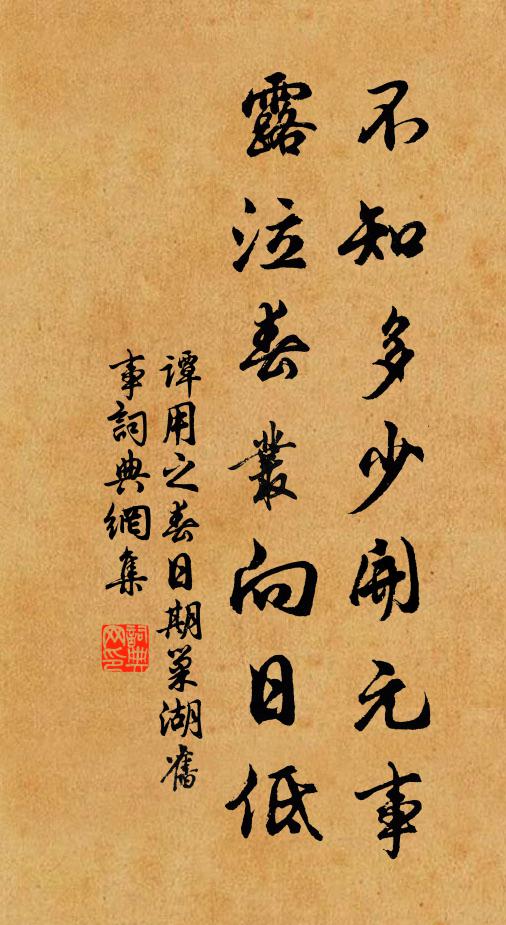 不知多少開元事
露泣春叢向日低
譚用之春日期巢湖舊
事詞典網集
詞典
网印